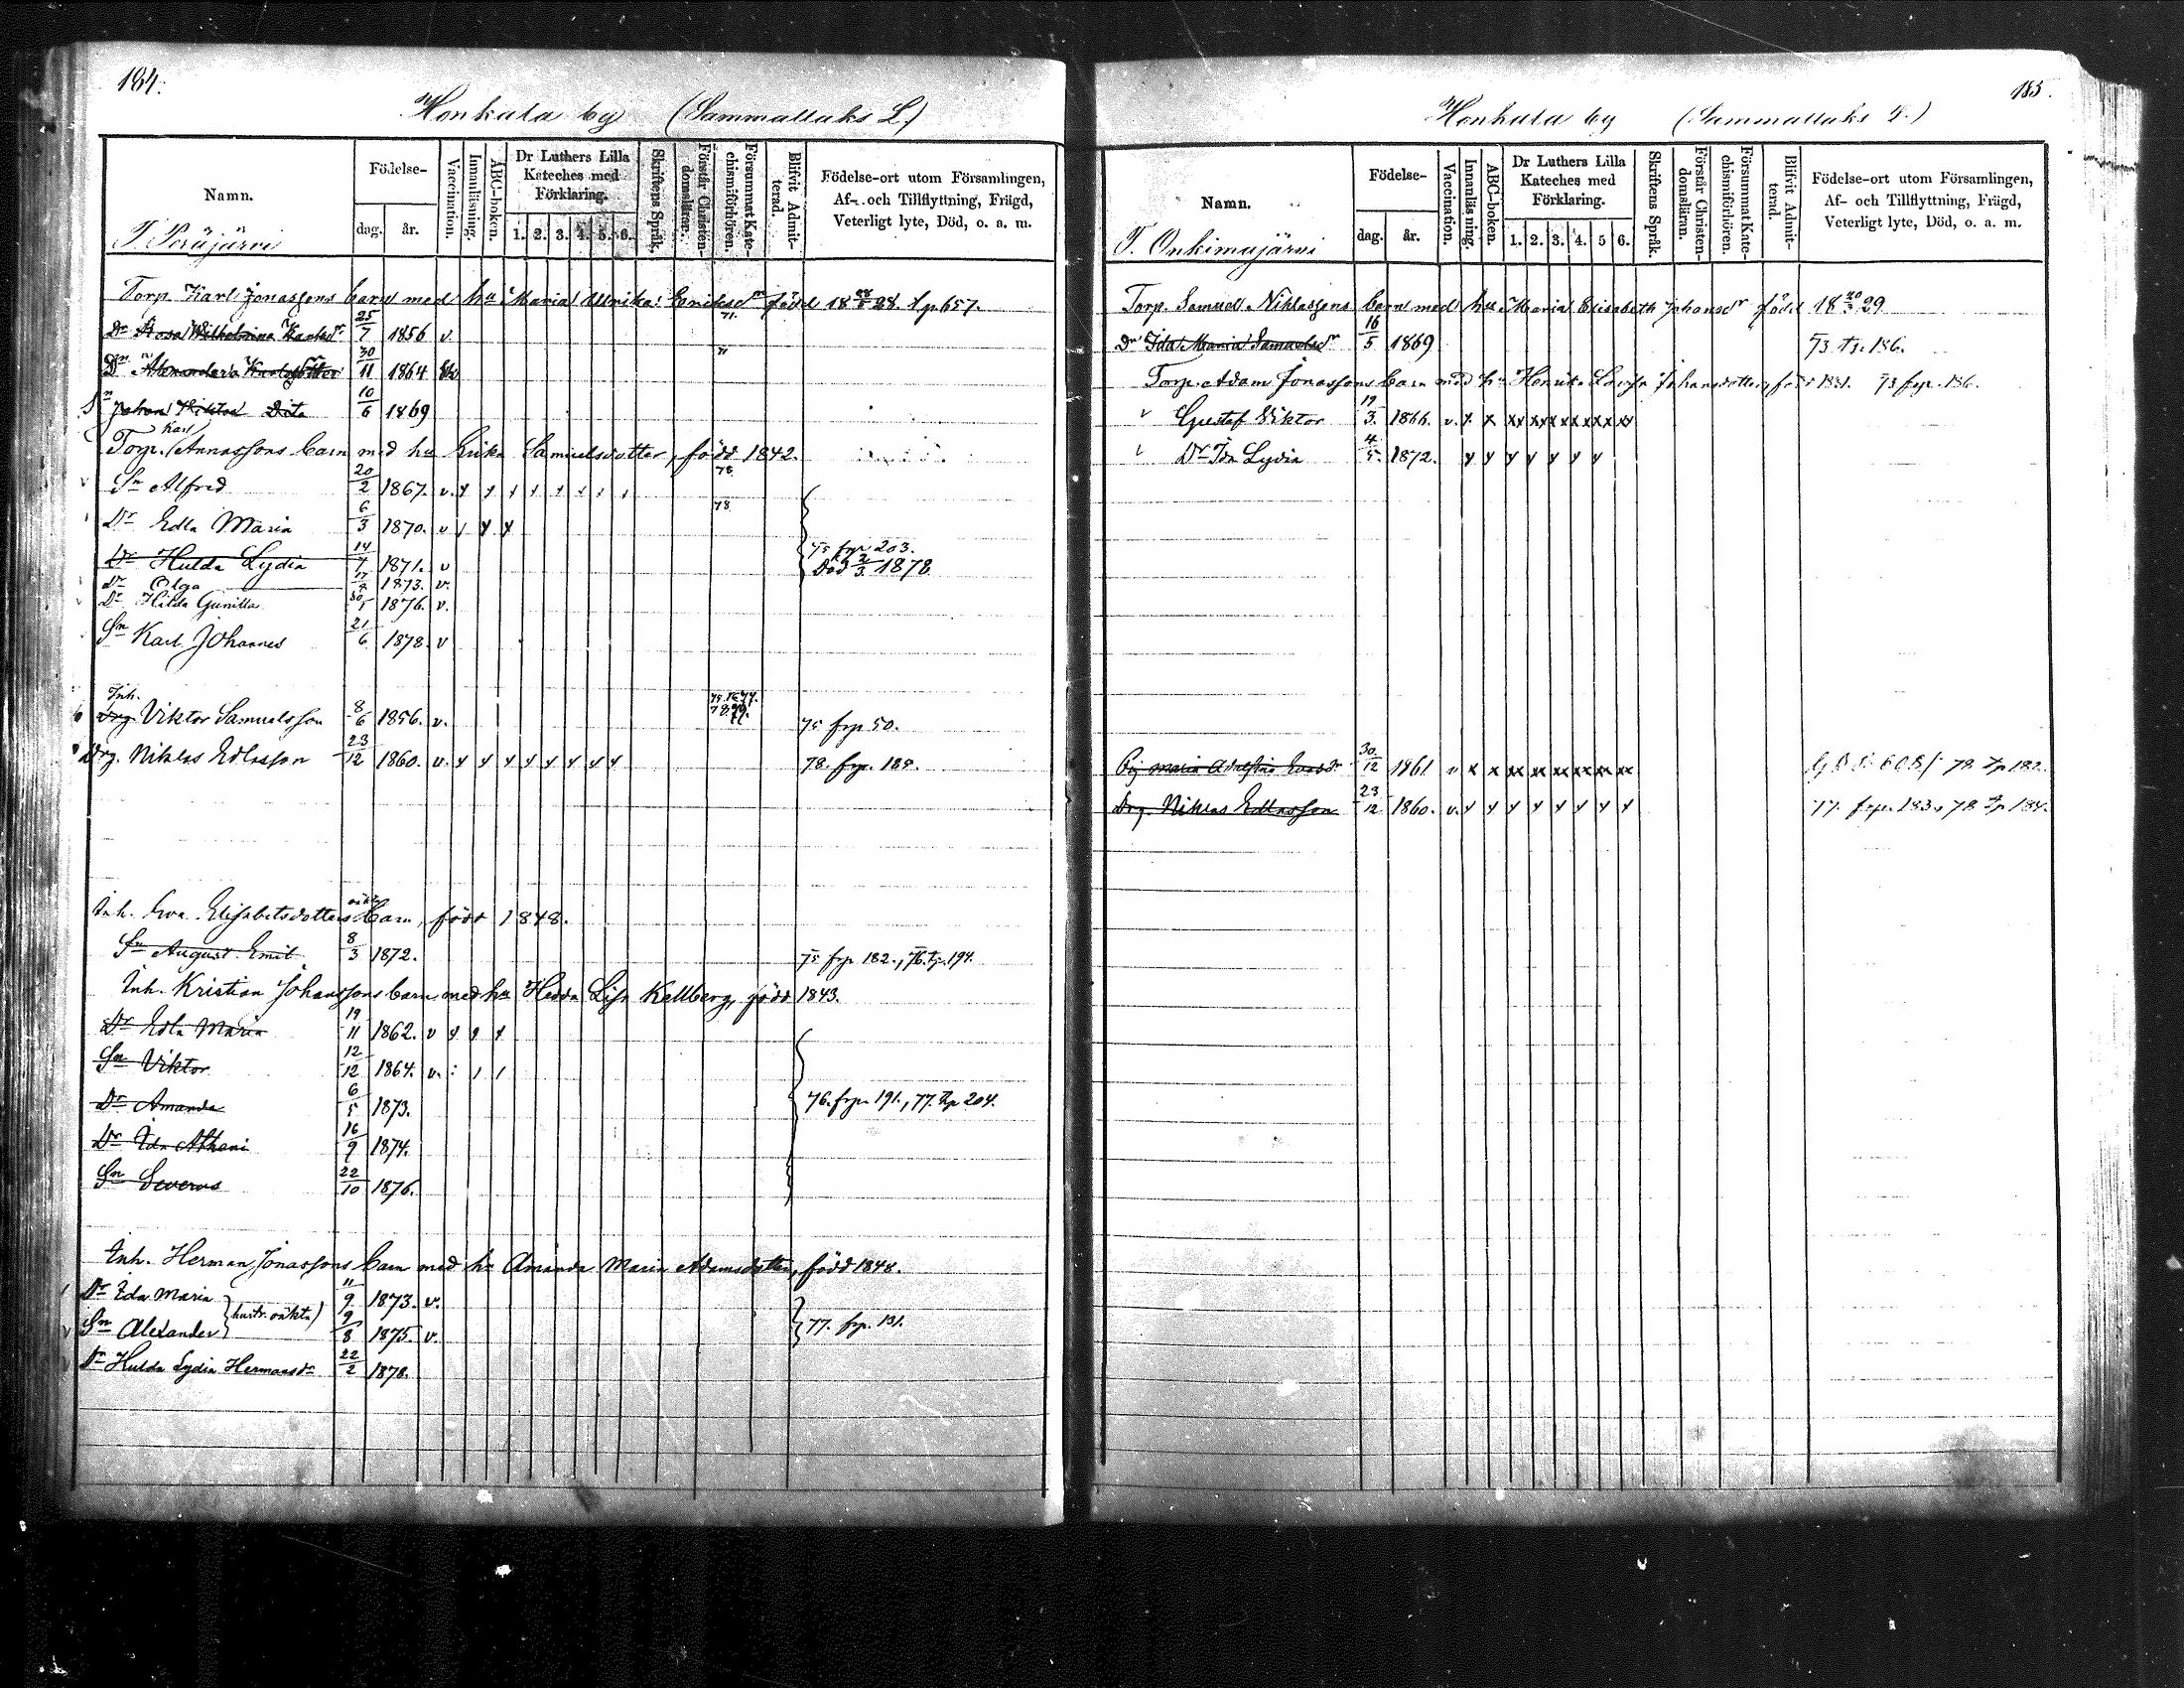 184.
Honkala by (Sammallaks L.)
Namn.
Födelse-
dag.
år.
Vaccination.
Innanläsning.
ABC-boken.
Dr Luthers Lilla Kateches med Förklaring.
1. 2. 3. 4. 5. 6.
Skriftens Språk.
Förstår Christendomsläran.
Försummat Katechismiförhören.
Blifvit Admitterad.
Födelse-ort utom Församlingen, Af- och Tillflyttning, Frägd, Veterligt lyte, Död, o. a. m.
T. Peräjärvi
Torp. Karl Jonassons barn med hu Maria Ulrika Eriksdr född 18 28 tp 657.
Dr Rosa Wilhelmina Karlsdr 25/7 1856 v. 71.
Dr Alexandera Karlsdotter 30/11 1864 71
Sn Johan Viktor Dito 10/6 1869
Karl
Torp. Annassons barn med hu Erika Samuelsdotter, född 1842.
v Sn Alfred 20/2 1867. v. x x x x x x x x 78
Dr Edla Maria 6/3 1870. v x x x 78
Dr Hulda Lydia 14/7 1871. v 75 frp 203. Död 2/3 1878
Dr Olga 17/9 1873. v.
Dr Hilda Gunilla 30/1 1876. v.
Sn Karl Johannes 21/6 1878. v
Inh.
Drg. Viktor Samuelsson 8/6 1856. v. 75. 76. 77. 78. 79. 75 frp 50.
Drg. Niklas Edlasson 23/12 1860. v. x x x x x x x x 78. frp. 185.
Inh. Eva Elisabetsdotters oäkta barn, född 1848.
Sn August Emil 8/3 1872. 75 frp 182., 76. tp. 194.
Inh. Kristian Johanssons barn med hu Hedda Lisa Kellberg, född 1843.
Dr Edla Maria 19/11 1862. v x x x
Sn Viktor 12/12 1864. v.
Dr Amanda 6/5 1873. 76. frp 191., 77. tp 204.
Dr Ida Athani 16/9 1874.
Sn Severus 22/10 1876.
Inh. Herman Jonassons barn med hu Amanda Maria Adamsdotter, född 1848.
Dr Ida Maria 11/9 1873. v.
(hustr. oäkta) 77. frp. 131.
v Sn Alexander 9/8 1875. v.
v Dr Hulda Lydia Hermansdr 22/2 1878.
185.
Honkala by (Sammallaks L.)
Namn.
Födelse-
dag.
år.
Vaccination.
Innanläsning.
ABC-boken.
Dr Luthers Lilla Kateches med Förklaring.
1. 2. 3. 4. 5 6.
Skriftens Språk.
Förstår Christendomsläran.
Försummat Katechismiförhören.
Blifvit Admitterad.
Födelse-ort utom Församlingen, Af- och Tillflyttning, Frägd, Veterligt lyte, Död, o. a. m.
T. Onkimajärvi
Torp. Samuel Niklassons barn med hu Maria Elisabeth Johansdr född 18 20/3 29
Dr Ida Maria Samuelsdr 16/5 1869 73 tp. 186.
Torp. Adam Jonassons barn med hu Henrika Lovisa Johansdotter, född 1831. 73 frp. 186.
v Gustaf Viktor 19/3 1866. v. x x xx xx xx xx xx xx
v Dr Ida Lydia 4/5 1872. x x x x x x x
Pig Maria Evasdr 30/12 1861 v x x xx xx xx xx xx xx 78 tp 182.
Drg. Niklas Edlasson 23/12 1860. v. x x x x x x x x 77. frp. 183., 78 tp 184.